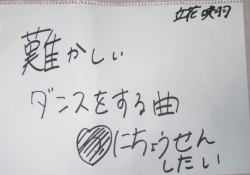 難かしい
ダンスをする曲
にちょうせん
したい